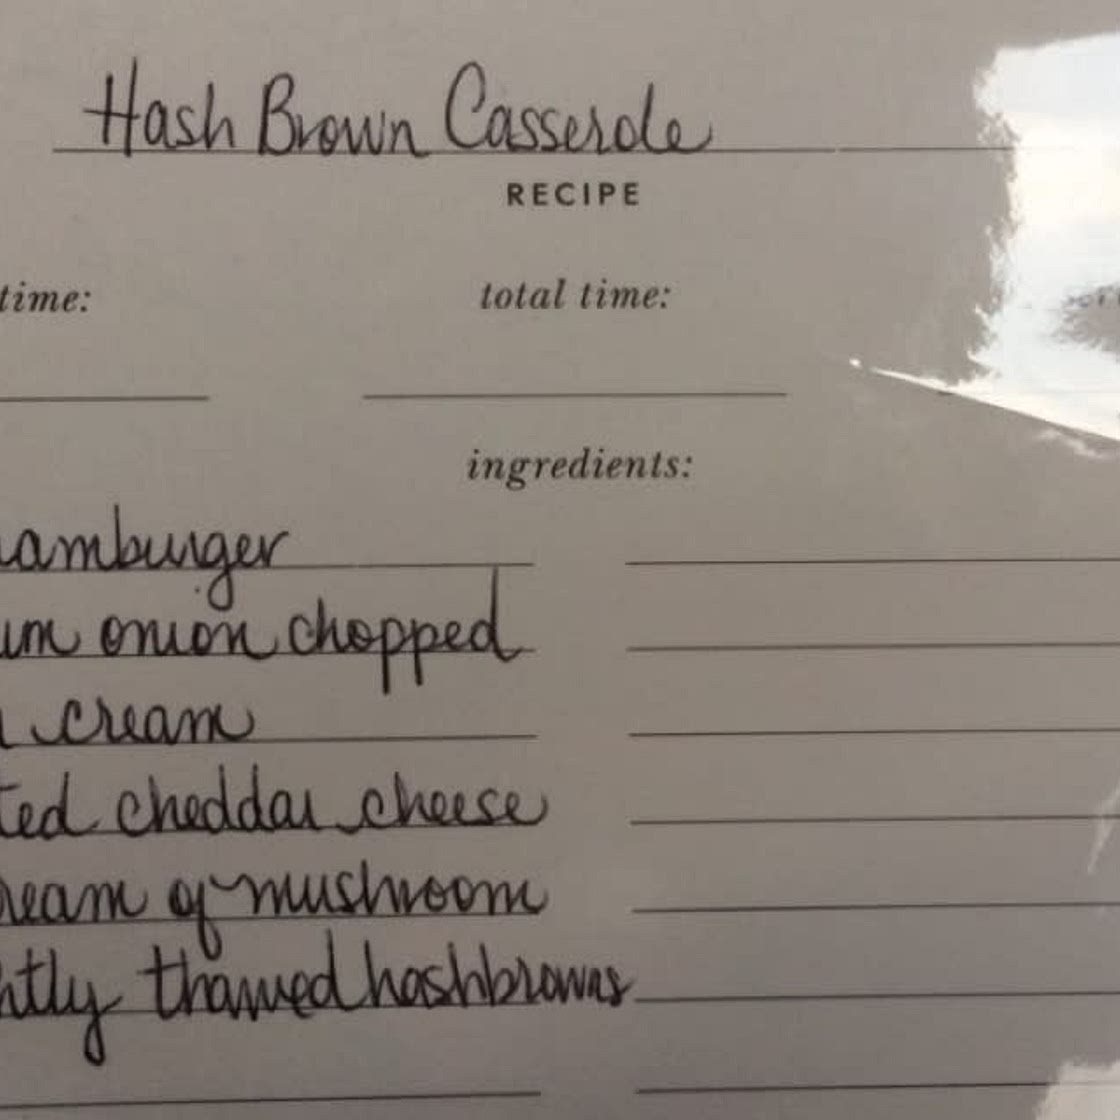 Hash Brown Casserole
RECIPE
time: total time:
ingredients:
amburger
um onion chopped
cream
ted cheddar cheese
ream of mushroom
htly thawed hashbrowns